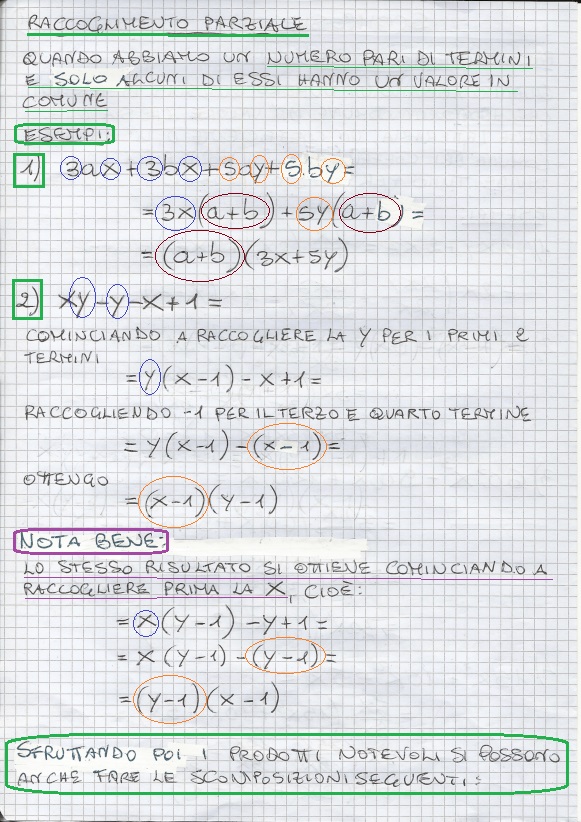 RACCOGLIMENTO PARZIALE
QUANDO ABBIAMO UN NUMERO PARI DI TERMINI
E SOLO ALCUNI DI ESSI HANNO UN VALORE IN
COMUNE
ESEMPI:
1) 3ax+3bx+5ay+5by=
=3x(a+b)+5y(a+b)=
=(a+b)(3x+5y)
2) xy-y-x+1=
COMINCIANDO A RACCOGLIERE LA Y PER I PRIMI 2
TERMINI
=y(x-1)-x+1=
RACCOGLIENDO -1 PER IL TERZO E QUARTO TERMINE
=y(x-1)-(x-1)=
OTTENGO
=(x-1)(y-1)
NOTA BENE:
LO STESSO RISULTATO SI OTTIENE COMINCIANDO A
RACCOGLIERE PRIMA LA X, CIOÈ:
=x(y-1)-y+1=
=x(y-1)-(y-1)=
=(y-1)(x-1)
SFRUTTANDO POI I PRODOTTI NOTEVOLI SI POSSONO
ANCHE FARE LE SCOMPOSIZIONI SEGUENTI: